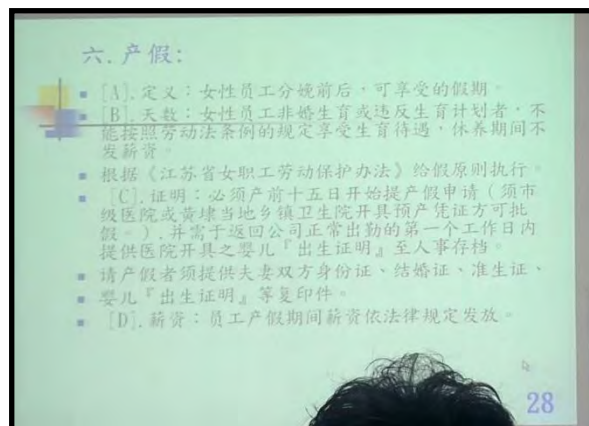 六. 产假:
[A]. 定义：女性员工分娩前后，可享受的假期。
[B]. 天数：女性员工非婚生育或违反生育计划者，不
能按照劳动法条例的规定享受生育待遇，休养期间不
发薪资。
根据《江苏省女职工劳动保护办法》给假原则执行。
[C]. 证明：必须产前十五日开始提产假申请（须市
级医院或黄埭当地乡镇卫生院开具预产凭证方可批
假。）. 并需于返回公司正常出勤的第一个工作日内
提供医院开具之婴儿『出生证明』至人事存档。
请产假者须提供夫妻双方身份证、结婚证、准生证、
婴儿『出生证明』等复印件。
[D]. 薪资：员工产假期间薪资依法律规定发放。
28